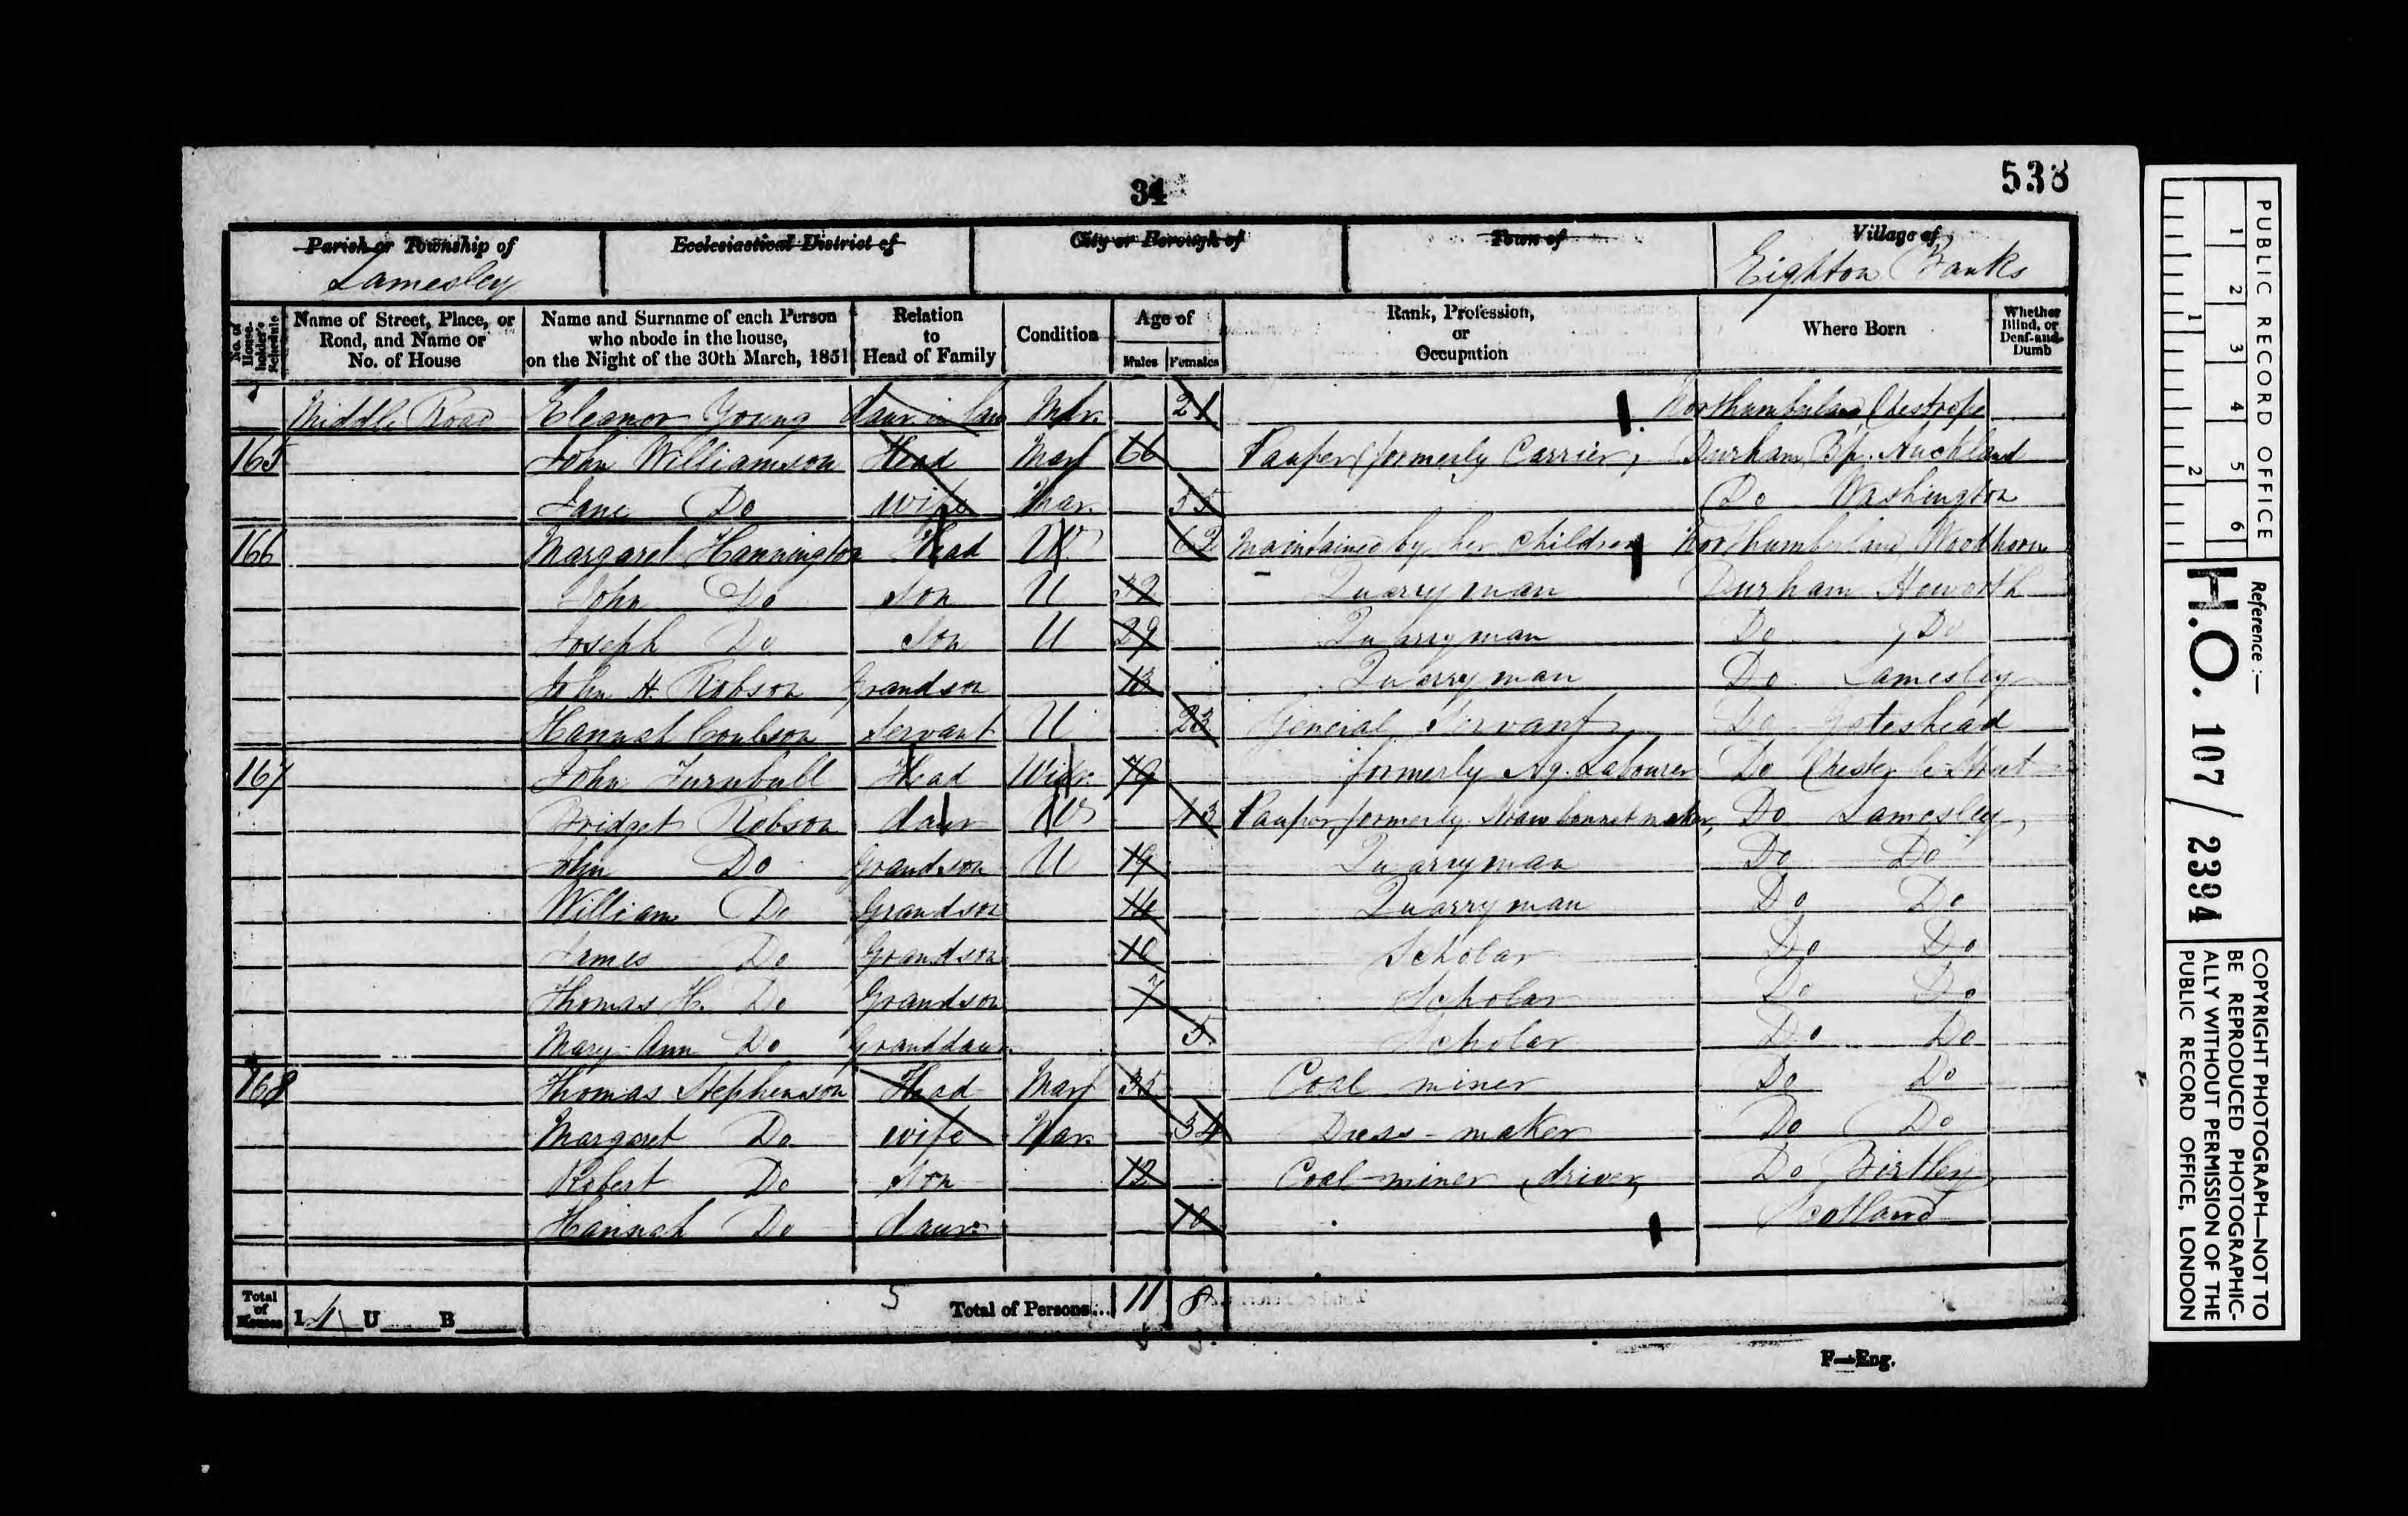 34
538
Parish or Township of
Lamesley
Ecclesiastical District of
City or Borough of
Town of
Village of
Eighton Banks
No. of House-holder's Schedule
Name of Street, Place, or Road, and Name or No. of House
Name and Surname of each Person who abode in the house, on the Night of the 30th March, 1851
Relation to Head of Family
Condition
Age of
Males
Females
Rank, Profession, or Occupation
Where Born
Whether Blind, or Deaf-and-Dumb
Middle Road Eleanor Young daur. in law Mar. 21 Northumberland
165 John Williamson Head Mar 66 Pauper (formerly Carrier) Durham, Bp. Auckland
Jane Do wife Mar. 55 Do Washington
166 Margaret Hannington Head W 62 Maintained by her children Northumberland Woodhorn
John Do son U 32 Quarryman Durham Heworth
Joseph Do son U 29 Quarryman Do Do
John H. Robson Grandson 13 Quarryman Do Lamesley
Hannah Coulson Servant U 23 General Servant Do Gateshead
167 John Turnbull Head Widr. 79 formerly Ag. Labourer Do Chester le Street
Bridget Robson daur W 43 Pauper, formerly Straw bonnet maker, Do Lamesley
John Do Grandson U 19 Quarryman Do Do
William Do Grandson 14 Quarryman Do Do
James Do Grandson 10 Scholar Do Do
Thomas H. Do Grandson 7 Scholar Do Do
Mary Ann Do Granddaur 5 Scholar Do Do
168 Thomas Stephenson Head Mar 35 Coal miner Do Do
Margaret Do wife Mar. 34 Dress-maker Do Do
Robert Do Son 12 Coal-miner (driver) Do Birtley
Hannah Do daur. 10 Scotland
Total of Houses
I 4 U B
5
Total of Persons... 11 8
F—Eng.
PUBLIC RECORD OFFICE
1 2 3 4 5 6
1 2
Reference :—
H.O. 107 / 2394
COPYRIGHT PHOTOGRAPH—NOT TO
BE REPRODUCED PHOTOGRAPHIC-
ALLY WITHOUT PERMISSION OF THE
PUBLIC RECORD OFFICE, LONDON